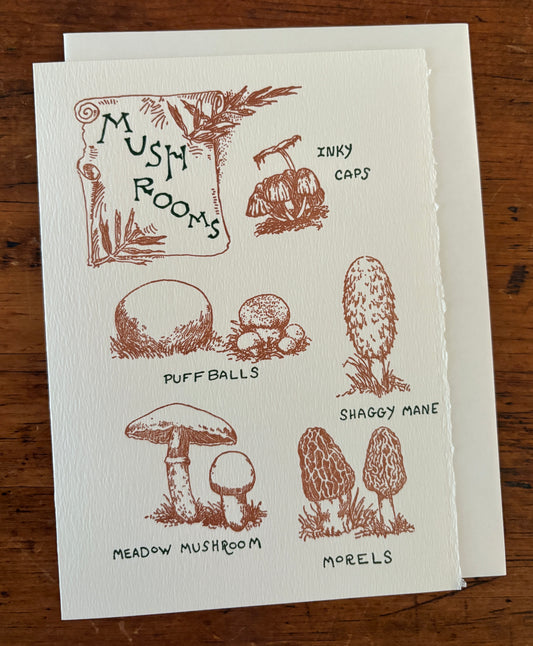 MUSH
ROOMS
INKY
CAPS
PUFFBALLS
SHAGGY MANE
MEADOW MUSHROOM
MORELS